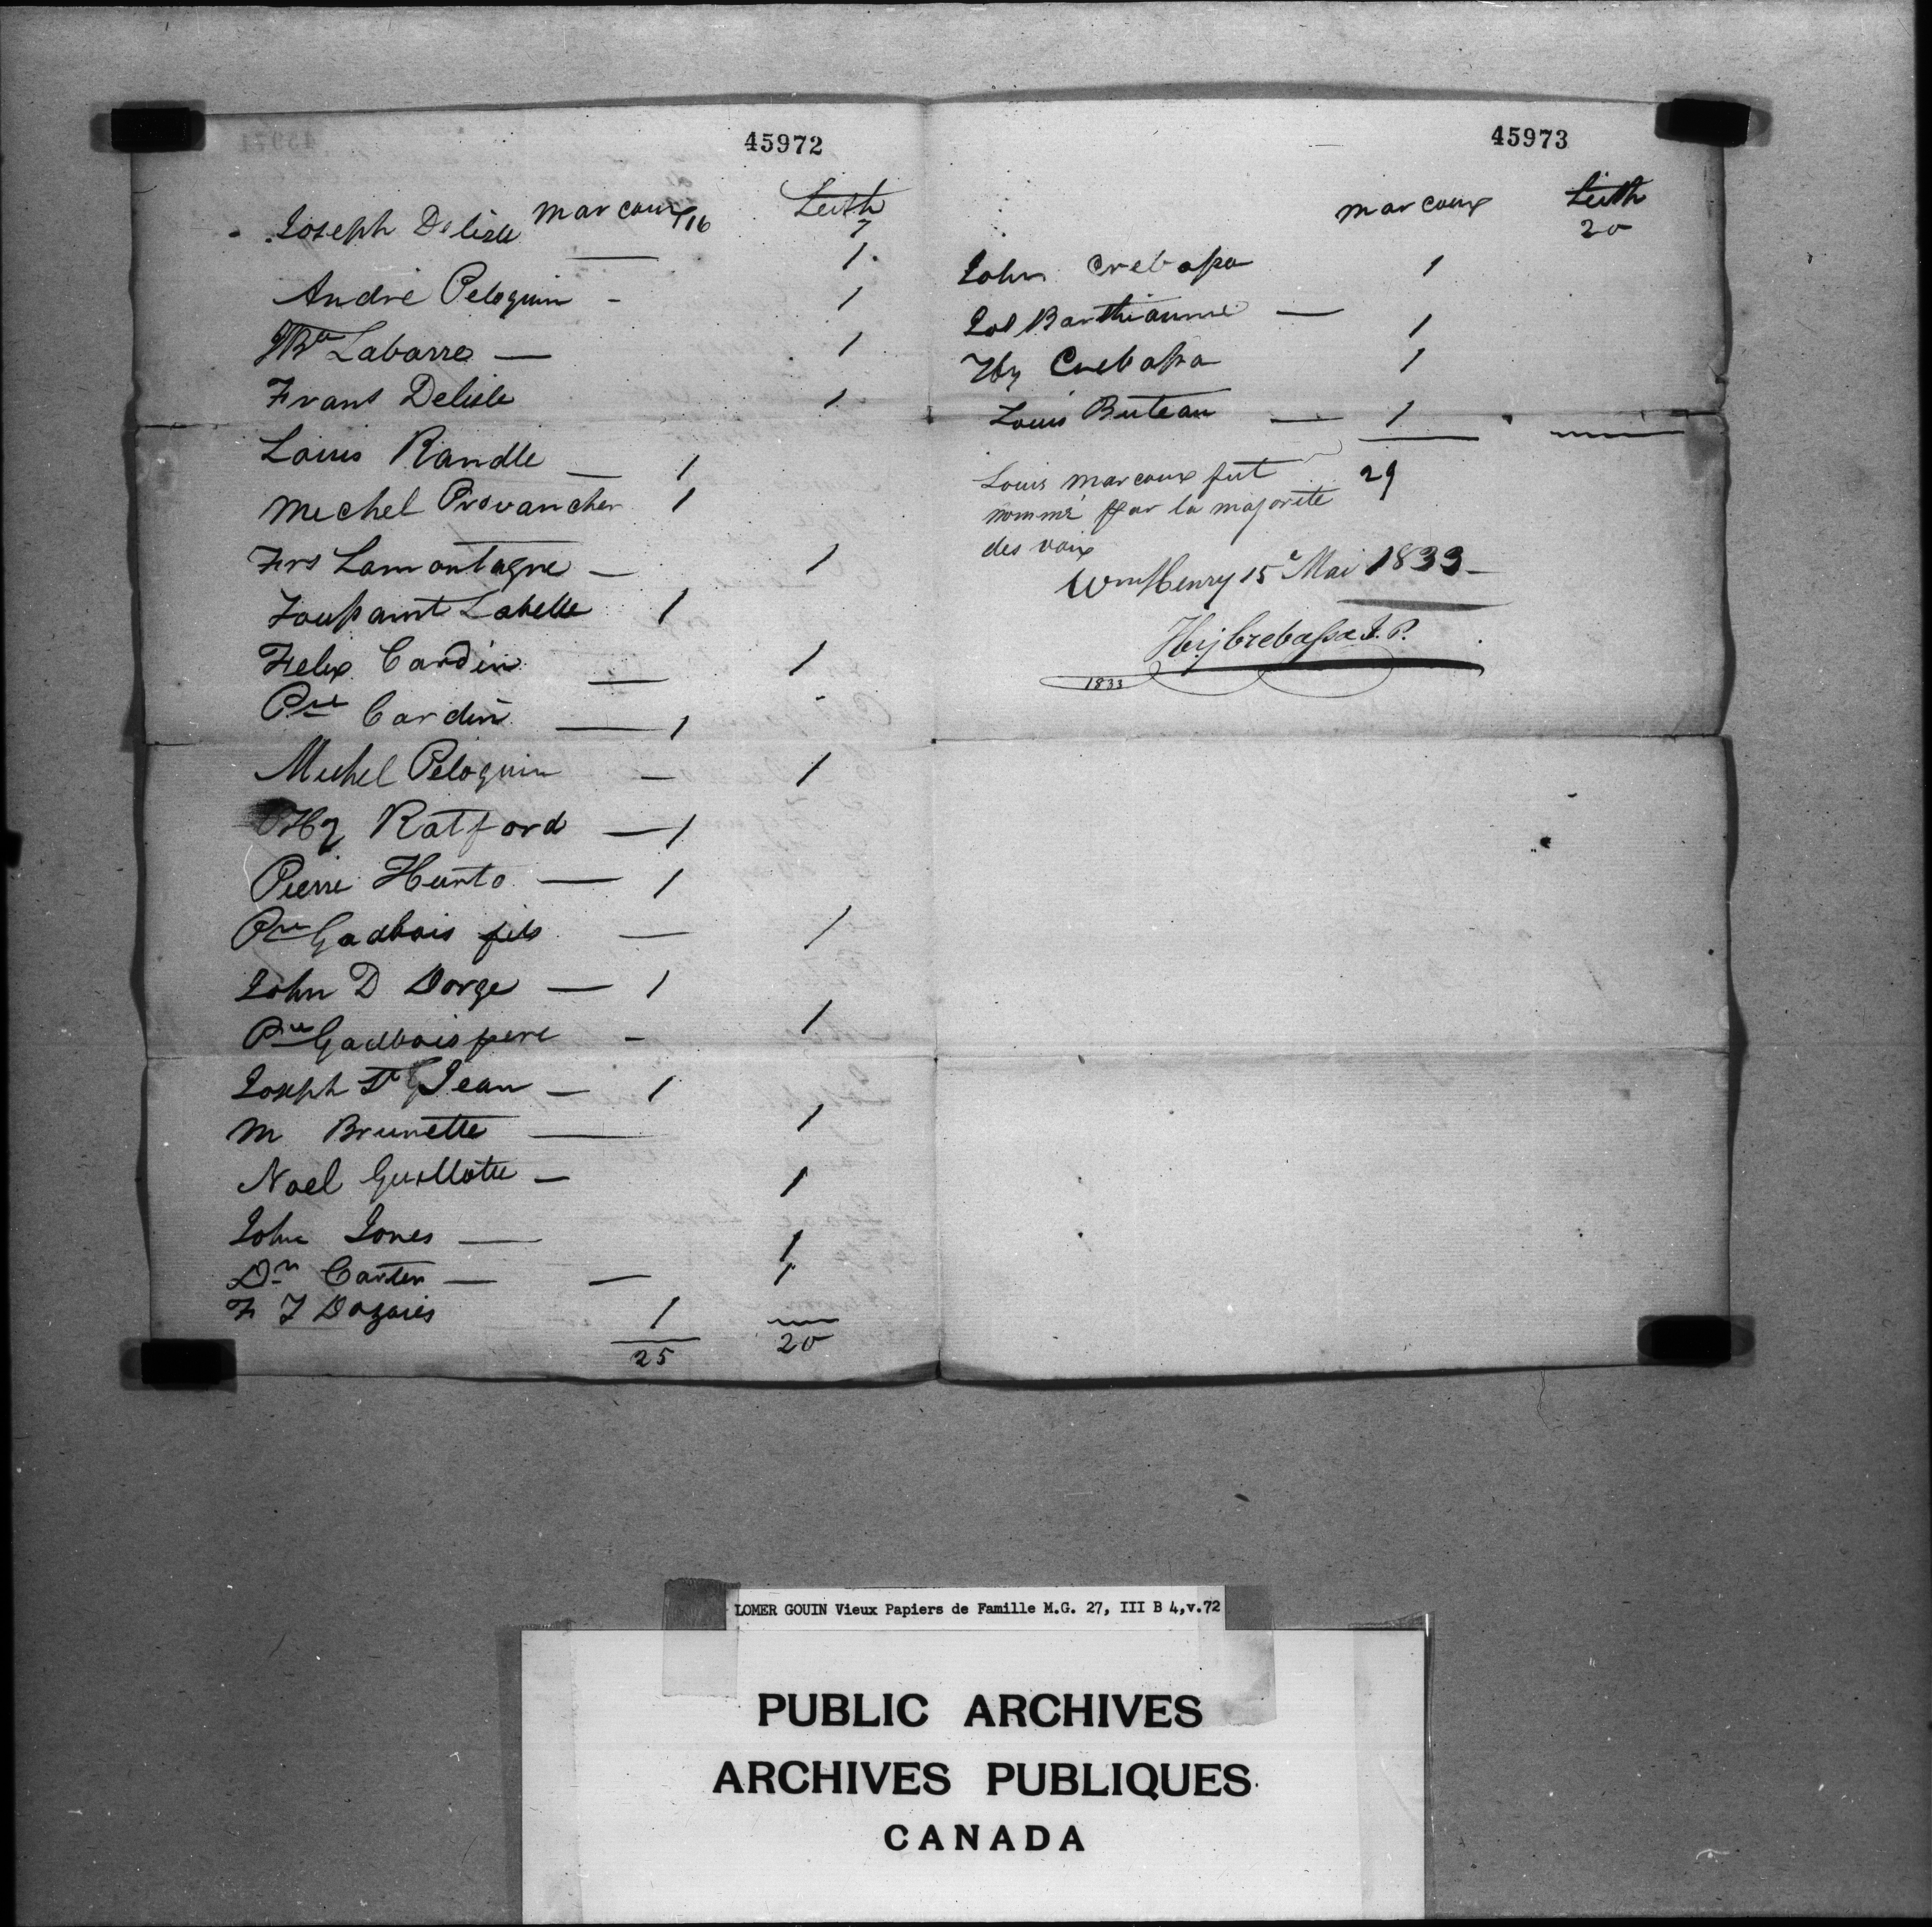 45972
Marcoux Leith
Joseph Delisle 16 7
— 1
André Peloquin - 1
JBte Labarre — 1
Frans Delisle 1
Louis Randle — 1
Michel Provancher 1
Frs Lamontagne — 1
Toussaint Labelle 1
Felix Cardin — 1
Pre Cardin — 1
Michel Peloquin — 1
Hy Ratford — 1
Pierre Hunto — 1
Pre Gadbois fils — 1
John D Dorge — 1
Pre Gadbois pere - 1
Joseph St Jean — 1
M Brunette — 1
Noel Guillotte — 1
John Jones — 1
Dr Carter — — 1
F I Dazaies 1
25 20
45973
Marcoux Leith
20
John Crebassa 1
Jos Barthiaume — 1
Hy Crebassa 1
Louis Buteau — 1
Louis Marcoux fut 29
nommé par la majorité
des voix
Wm Henry 15e Mai 1833 —
Hy Crebassa J. P.
1833
LOMER GOUIN Vieux Papiers de Famille M.G. 27, III B 4,v.72
PUBLIC ARCHIVES
ARCHIVES PUBLIQUES
CANADA